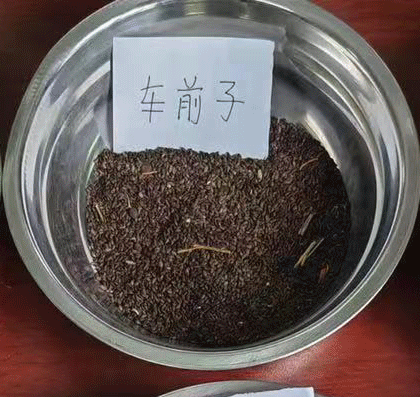 车前子